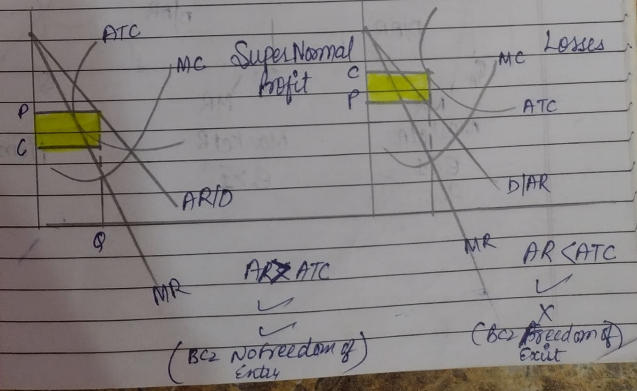 ATC
MC
SuperNormal
Profit
P
C
AR/D
Q
MR
AR > ATC
✓
✓
(BCz No Freedom of
Entry)
MC
Losses
C
P
ATC
D/AR
MR
AR < ATC
✓
X
(BCz Freedom of
Exit)